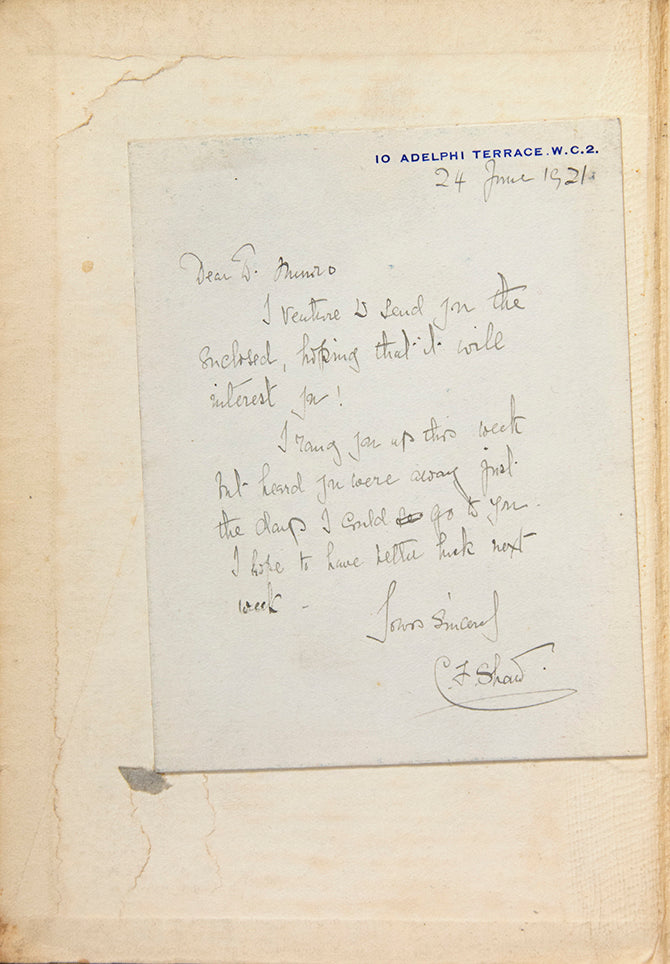 10 ADELPHI TERRACE. W.C.2.
24 June 1921.
Dear D. Munro
I venture to send you the
enclosed, hoping that it will
interest you!
I rang you up this week
but heard you were away just
the days I could go to you.
I hope to have better luck next
week -
Yours Sincerely
C. F. Shaw.